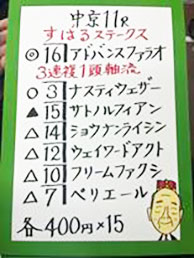 中京11R
すばるステークス
◎16アドバンスファラオ
3連複1頭軸流
○3ナスティウェザー
▲15サトノルフィアン
△14ショウナンライシン
△12ウェイワードアクト
△10フリームファクシ
△7ペリエール
各400円×15